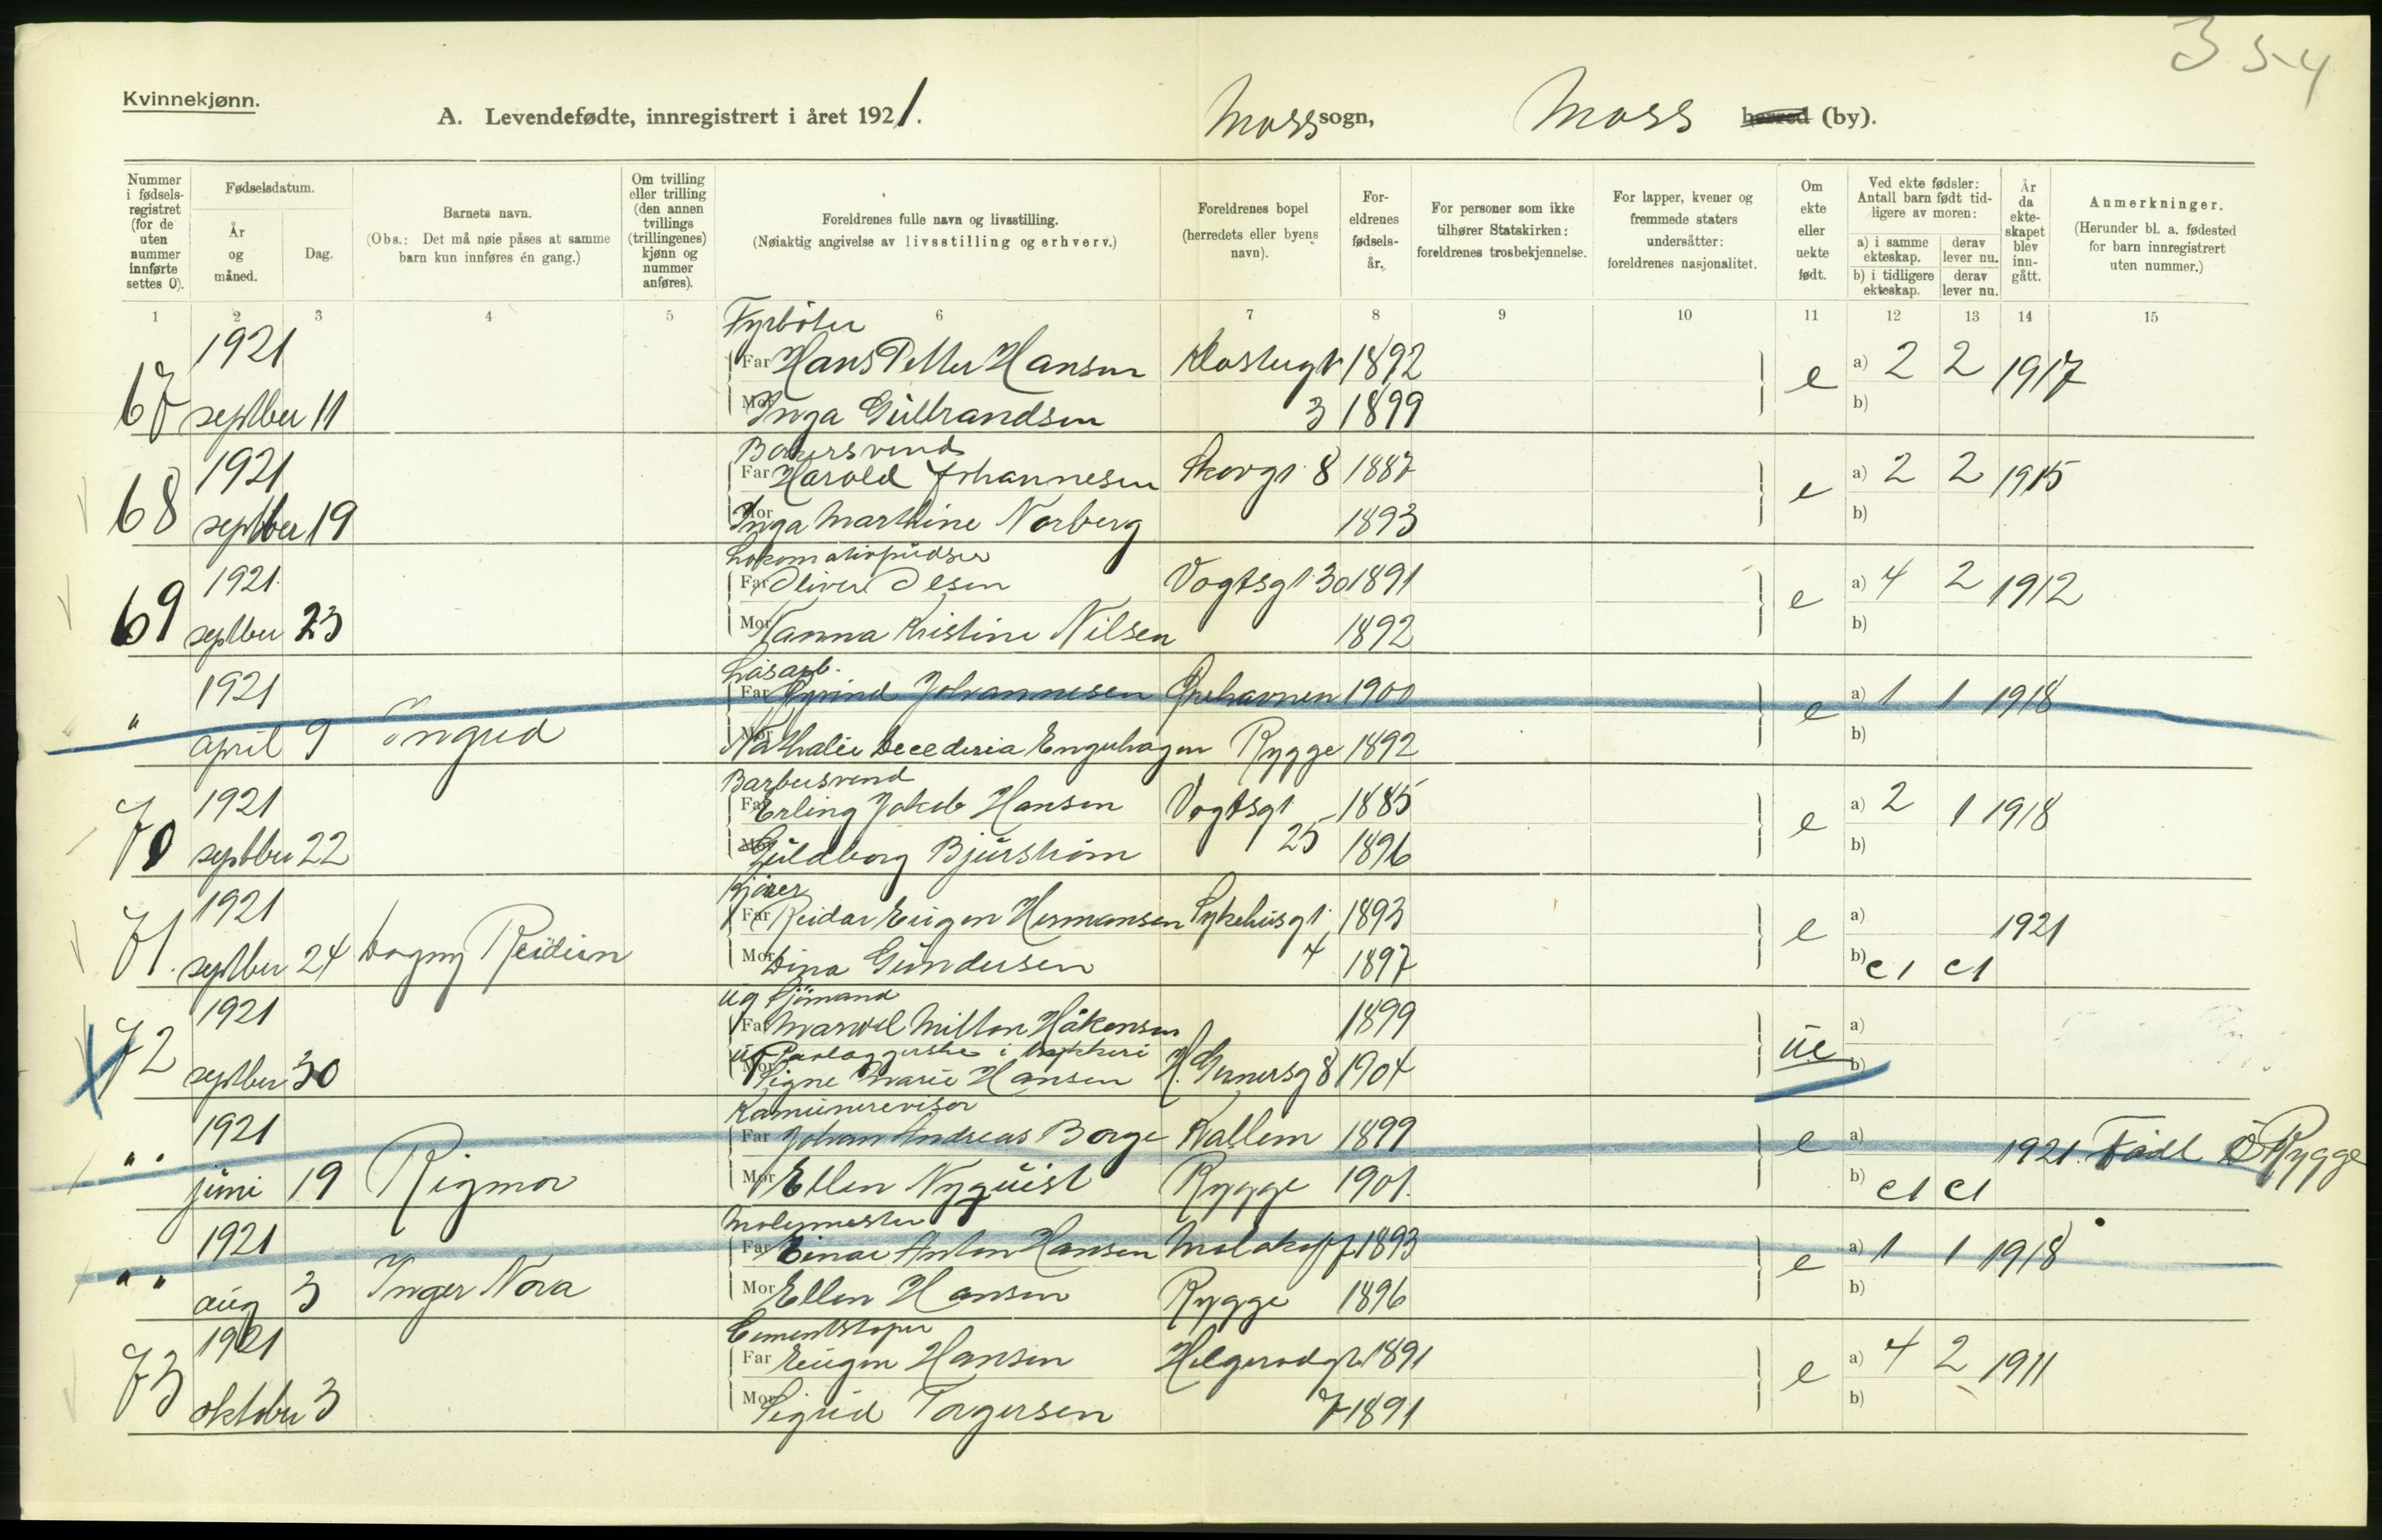 354
Kvinnekjønn.
A. Levendefødte, innregistrert i året 1921. Moss sogn, Moss herred (by).
Nummer i fødsels-registret (for de uten nummer innførte settes 0).
Fødselsdatum.
År og måned.
Dag.
Barnets navn.
(Obs.: Det må nøie påses at samme barn kun innføres én gang.)
Om tvilling eller trilling (den annen tvillings (trillingenes) kjønn og nummer anføres).
Foreldrenes fulle navn og livsstilling.
(Nøiaktig angivelse av livsstilling og erhverv.)
Foreldrenes bopel (herredets eller byens navn).
For-eldrenes fødsels-år.
For personer som ikke tilhører Statskirken: foreldrenes trosbekjennelse.
For lapper, kvener og fremmede staters undersåtter: foreldrenes nasjonalitet.
Om ekte eller uekte født.
Ved ekte fødsler: Antall barn født tid-ligere av moren:
a) i samme ekteskap.
derav lever nu.
b) i tidligere ekteskap.
derav lever nu.
År da ekte-skapet blev inn-gått.
Anmerkninger.
(Herunder bl. a. fødested for barn innregistrert uten nummer.)
1 2 3 4 5 6 7 8 9 10 11 12 13 14 15
Fyrböter
1921 Far Hans Petter Hansen 1892 a) 2 2 1917
67 septber 11 Mor Inga Gulbrandsen 3 1899 e b)
Bakersvend
1921 Far Harald Johannesen Skovgt 8 1887 a) 2 2 1915
68 septber 19 Mor Inga Marthine Norberg 1893 e b)
Lokomotivpudser
1921 Far Oliver Olsen Vogtsgt 30 1891 a) 4 2 1912
69 septber 23 Mor Nanna Kristine Nilsen 1892 e b)
Løsarb.
1921 Far Øyvind Johannesen 1900 a) 1 1 1918
" april 9 Ingrid Mor Nathalie Engenhagen Rygge 1892 e b)
Barbersvend
1921 Far Erling Jakob Hansen Vogtsgt 1885 a) 2 1 1918
70 septber 22 Mor Guldborg Bjurstrøm 25 1896 e b)
Kjører
1921 Far Reidar Eugen Hermansen Sykehusgt 1893 a) 1921
71. septber 24 Dagny Reidun Mor Dina Gundersen 4 1897 e b) e1 e1
ug Sjømand
1921 Far Marvel Milton Håkonsen 1899 a)
ug i
72 septber 30 Mor Signe Marie Hansen H. Gernersg 8 1904 ue b)
Kamunerevisor
1921 Far Johan Andreas Borge Kallem 1899 e a) 1921. Född i Rygge
". juni 19 Rigmor Mor Ellen Nyquist Rygge 1901. b) e1 e1
1921 Far Einar Anton Hansen Malakoff 1893 a) 1 1 1918
" " aug 3 Inger Nora Mor Ellen Hansen Rygge 1896 e b)
Cementstøper
1921 Far Eugen Hansen Helgerødgt 1891 a) 4 2 1911
73 oktober 3 Mor Sigrid Torgersen 7 1891 e b)